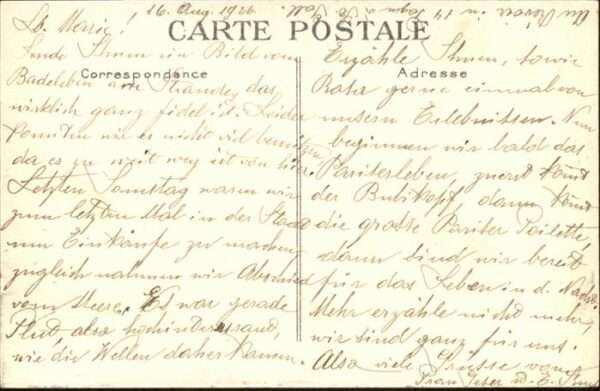 16. Aug. 1926
CARTE POSTALE
Lb. Marie!
Sende Ihnen ein Bild vom
Correspondance
Badeleben am Strande, das
wirklich ganz fidel ist. Leider
konnten wir es nicht viel
da es zu weit weg ist von hier.
Letzten Samstag waren wir
zum letzten Mal in der Stadt
um Einkäufe zu machen,
zugleich nahmen wir Abschied
vom Meere. Es war gerade
Flut, also hochinteressant,
wie die Wellen daherkamen.
Au Revoir in 14 Tagen
Erzähle Ihnen, sowie
Adresse
Rosa gerne einmal von
unsern Erlebnissen. Nun
beginnen wir bald das
Pariserleben, zuerst kommt
der Bubikopf, dann kommt
die grosse Pariser Toilette,
dann sind wir bereit
für das Leben in d.
Mehr erzähle nicht mehr,
wir sind ganz für uns.
Also viele Grüsse von